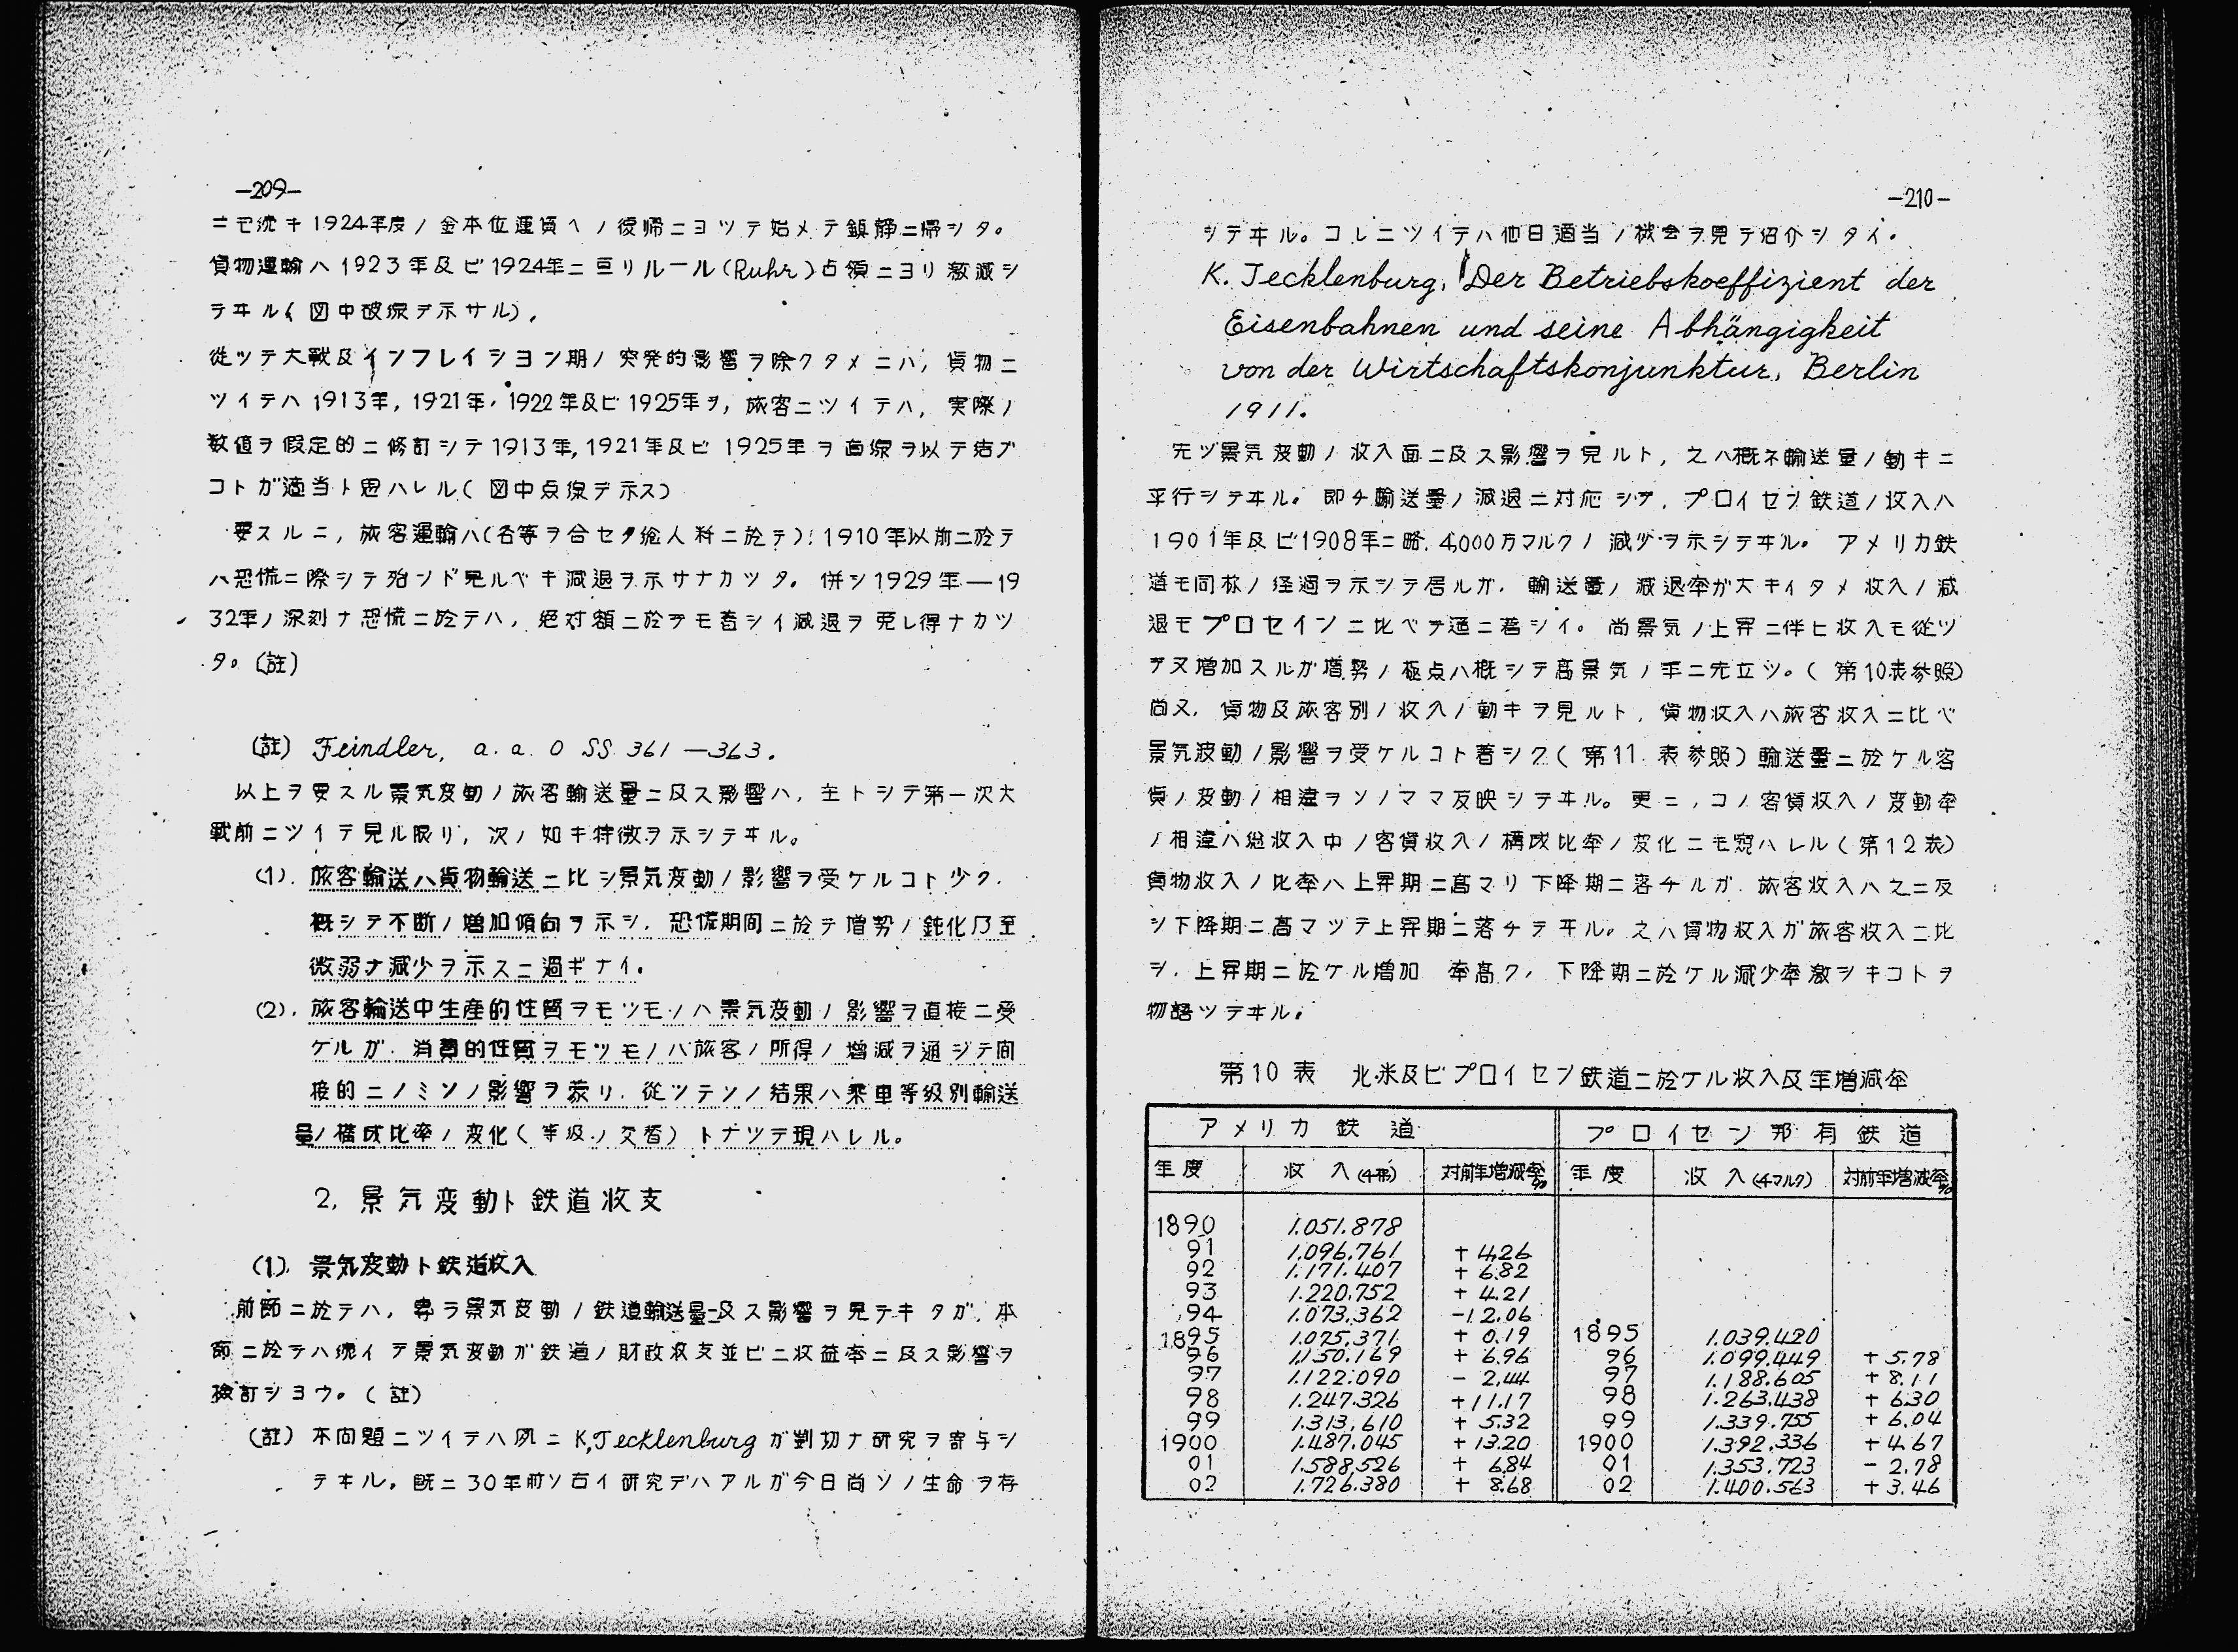 —209—
ニモ続キ1924年度ノ金本位運賃ヘノ復帰ニヨツテ始メテ鎮静ニ帰シタ。
貨物運輸ハ1923年及ビ1924年ニ亘リルール(Ruhr)占領ニヨリ激減シ
テヰル(図中破線デ示サル)。
従ツテ大戦及インフレイシヨン期ノ突発的影響ヲ除クタメニハ,貨物ニ
ツイテハ1913年,1921年,1922年及ビ1925年ヲ,旅客ニツイテハ,実際ノ
数値ヲ假定的ニ修訂シテ1913年,1921年及ビ1925年ヲ直線ヲ以テ結ブ
コトガ適当ト思ハレル(図中点線デ示ス)
要スルニ,旅客運輸ハ(各等ヲ合セタ総人粁ニ於テ):1910年以前ニ於テ
ハ恐慌ニ際シテ殆ンド見ルベキ減退ヲ示サナカツタ。併シ1929年—19
32年ノ深刻ナ恐慌ニ於テハ,絶対額ニ於テモ著シイ減退ヲ免レ得ナカツ
タ。(註)
(註) Feindler, a. a. O SS. 361—363.
以上ヲ要スル景気変動ノ旅客輸送量ニ及ス影響ハ,主トシテ第一次大
戦前ニツイテ見ル限リ,次ノ如キ特徴ヲ示シテヰル。
(1). 旅客輸送ハ貨物輸送ニ比シ景気変動ノ影響ヲ受ケルコト少ク.
概シテ不断ノ増加傾向ヲ示シ.恐慌期間ニ於テ増勢ノ鈍化乃至
微弱ナ減少ヲ示スニ過ギナイ.
(2). 旅客輸送中生産的性質ヲモツモノハ景気変動ノ影響ヲ直接ニ受
ケルガ.消費的性質ヲモツモノハ旅客ノ所得ノ増減ヲ通ジテ間
接的ニノミソノ影響ヲ蒙リ.従ツテソノ結果ハ乗車等級別輸送
量ノ構成比率ノ変化(等級ノ交替)トナツテ現ハレル。
2. 景気変動ト鉄道收支
(1). 景気変動ト鉄道收入
前節ニ於テハ,専ラ景気変動ノ鉄道輸送量ニ及ス影響ヲ見テキタガ,本
節ニ於テハ続イテ景気変動ガ鉄道ノ財政收支並ビニ收益率ニ及ス影響ヲ
検討シヨウ。(註)
(註)本問題ニツイテハ夙ニK,Tecklenburgガ剴切ナ研究ヲ寄与シ
テヰル。既ニ30年前ノ古イ研究デハアルガ今日尚ソノ生命ヲ存
—210—
シテヰル。コレニツイテハ他日適当ノ機会ヲ見テ紹介シタイ.
K. Tecklenburg, Der Betriebskoeffizient der
Eisenbahnen und seine Abhängigkeit
von der Wirtschaftskonjunktur, Berlin
1911.
先ヅ景気変動ノ收入面ニ及ス影響ヲ見ルト,之ハ概ネ輸送量ノ動キニ
平行シテヰル。即チ輸送量ノ減退ニ対応シテ,プロイセン鉄道ノ收入ハ
1901年及ビ1908年ニ略,4,000万マルクノ減少ヲ示シテヰル。アメリカ鉄
道モ同様ノ経過ヲ示シテ居ルガ,輸送量ノ減退率ガ大キイタメ收入ノ減
退モプロセインニ比ベテ遥ニ著シイ。尚景気ノ上昇ニ伴ヒ收入モ従ツ
テ又増加スルガ増勢ノ極点ハ概シテ高景気ノ年ニ先立ツ。(第10表参照)
尚又,貨物及旅客別ノ收入ノ動キヲ見ルト,貨物收入ハ旅客收入ニ比ベ
景気波動ノ影響ヲ受ケルコト著シク(第11.表参照)輸送量ニ於ケル客
貨ノ変動ノ相違ヲソノママ反映シテヰル。更ニ,コノ客貨收入ノ変動率
ノ相違ハ総收入中ノ客貨收入ノ構成比率ノ変化ニモ窺ハレル(第12表)
貨物收入ノ比率ハ上昇期ニ高マリ下降期ニ落チルガ.旅客收入ハ之ニ反
シ下降期ニ高マツテ上昇期ニ落チテヰル。之ハ貨物收入ガ旅客收入ニ比
シ.上昇期ニ於ケル増加 率高ク,下降期ニ於ケル減少率激シキコトヲ
物語ツテヰル.
第10表 北米及ビプロイセン鉄道ニ於ケル收入及年増減率
アメリカ鉄道 プロイセン邦有鉄道
年度 收入(千弗) 対前年増減率% 年度 收入(千マルク) 対前年増減率%
1890 1.051.878
91 1.096.761 +4.26
92 1.171.407 +6.82
93 1.220.752 +4.21
94 1.073.362 -12.06
1895 1.075.371 +0.19 1895 1.039.420
96 1,150.169 +6.96 96 1.099.449 +5.78
97 1.122.090 -2.44 97 1.188.605 +8.11
98 1.247.326 +11.17 98 1.263.438 +6.30
99 1.313,610 +5.32 99 1.339.755 +6.04
1900 1.487.045 +13.20 1900 1.392.336 +4.67
01 1.588.526 +6.84 01 1.353.723 -2.78
02 1.726.380 +8.68 02 1.400.563 +3.46